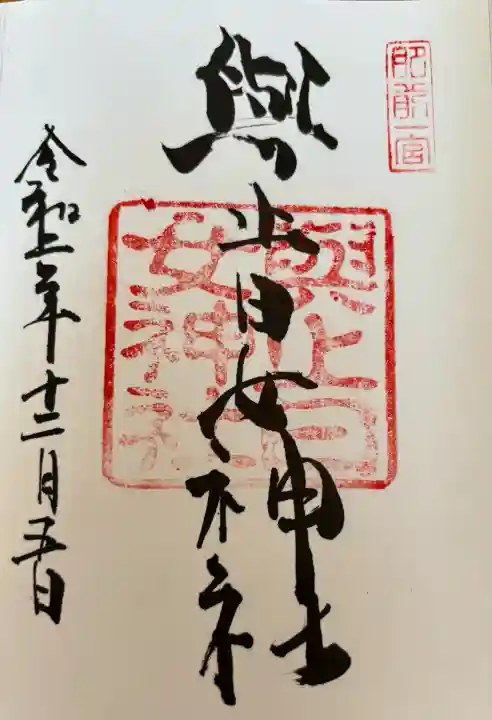 肥前一宮
與止日女神社
與止日女神社
令和年十二月五日